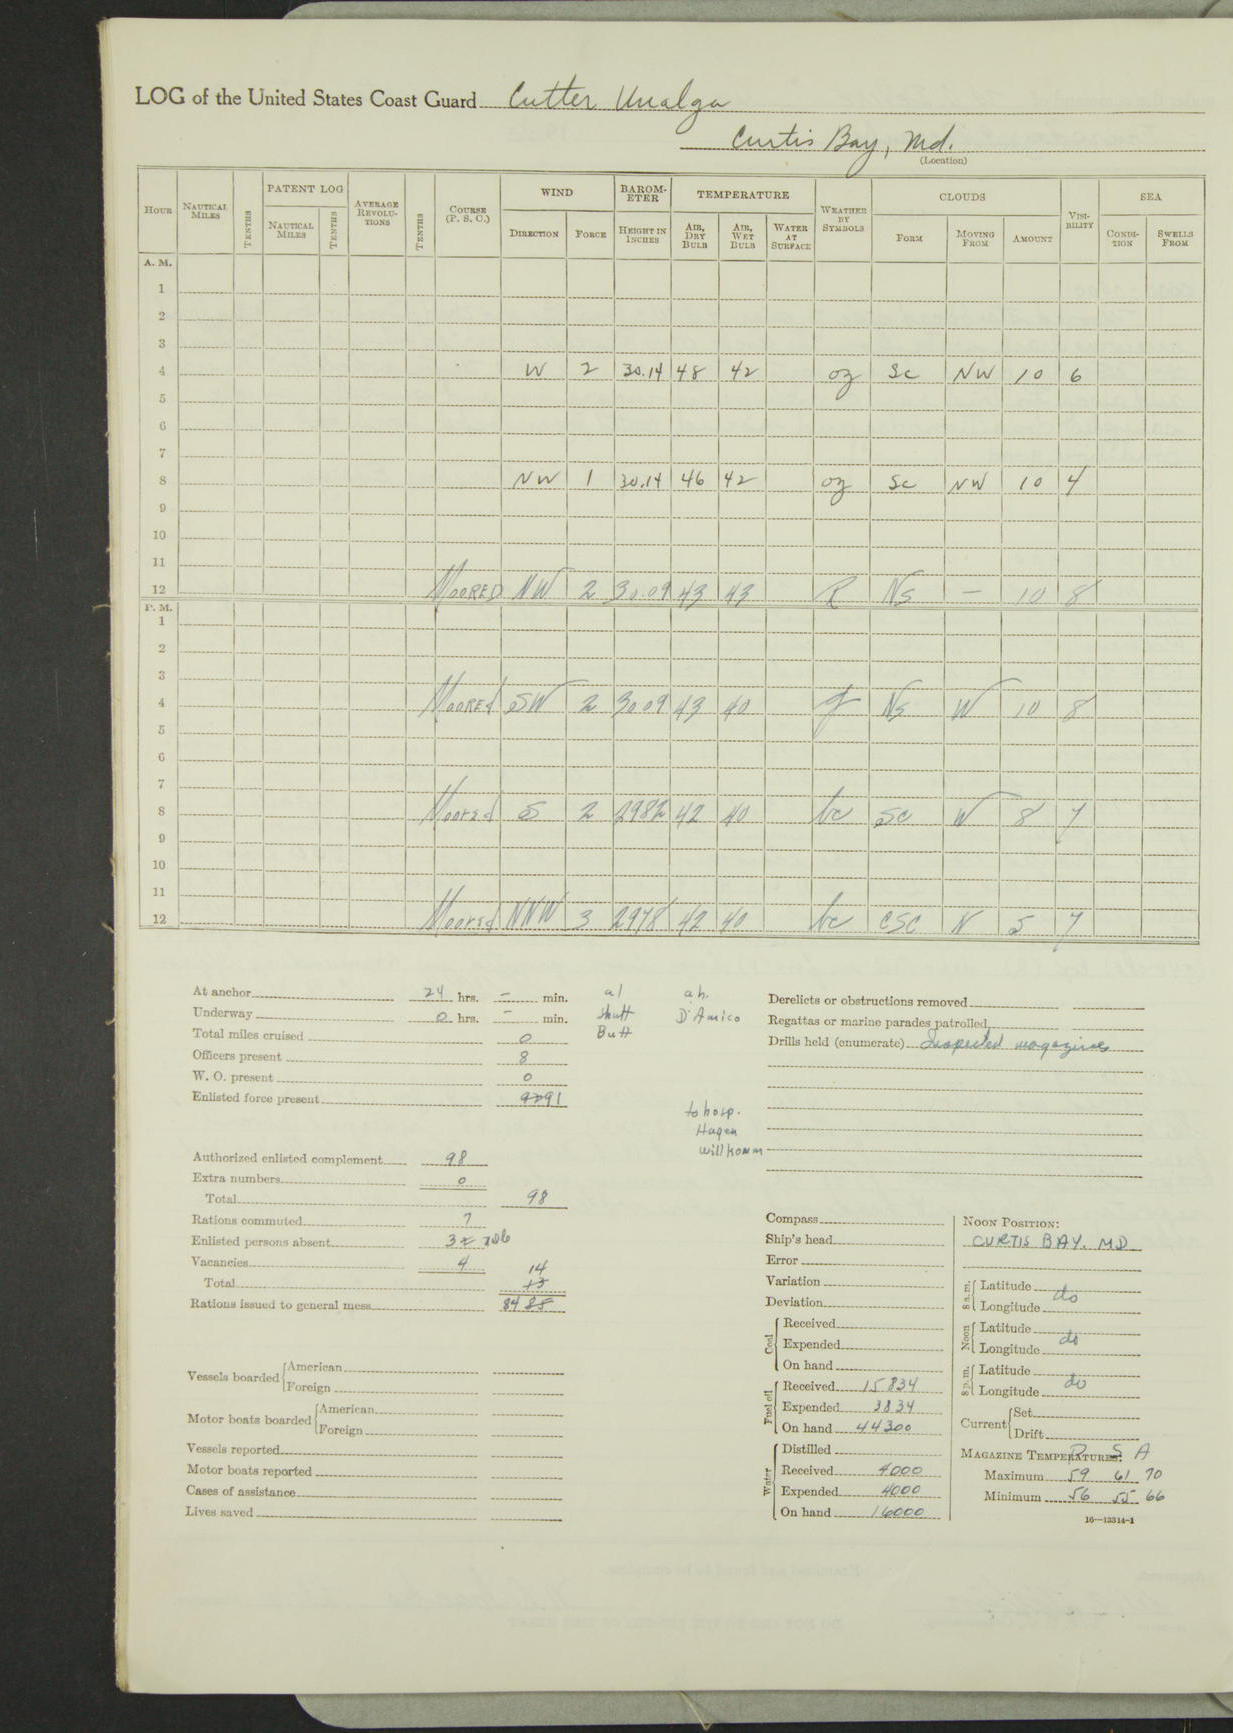 LOG of the United States Coast Guard Cutter Unalga
Curtis Bay, Md.
(Location)
HOUR NAUTICAL MILES TENTHS PATENT LOG NAUTICAL MILES TENTHS AVERAGE REVOLUTIONS TENTHS COURSE (P. S. C.) WIND DIRECTION FORCE BAROMETER HEIGHT IN INCHES TEMPERATURE AIR, DRY BULB AIR, WET BULB WATER AT SURFACE WEATHER BY SYMBOLS CLOUDS FORM MOVING FROM AMOUNT VISIBILITY SEA CONDITION SWELLS FROM
A. M.
1
2
3
4 W 2 30.14 48 42 oz Sc NW 10 6
5
6
7
8 NW 1 30.14 46 42 oz Sc NW 10 4
9
10
11
12 MOORED NW 2 30.09 43 43 R Ns — 10 8
P. M.
1
2
3
4 MOORED SW 2 3009 43 40 g Ns W 10 8
5
6
7
8 Moored S 2 2982 42 40 bc SC W 8 7
9
10
11
12 Moored NNW 3 2978 42 40 bc CSC N 5 7
At anchor 24 hrs. — min.
Underway 0 hrs. — min.
Total miles cruised 0
Officers present 8
W. O. present 0
Enlisted force present 92 91
al
Shutt
Butt
ah.
D'Amico
to hosp.
Hagen
Willkomm
Authorized enlisted complement 98
Extra numbers 0
Total 98
Rations commuted 7
Enlisted persons absent 3
Vacancies 4
14
Total 13
Rations issued to general mess 84 85
Vessels boarded American
Foreign
Motor boats boarded American
Foreign
Vessels reported
Motor boats reported
Cases of assistance
Lives saved
Derelicts or obstructions removed
Regattas or marine parades patrolled
Drills held (enumerate) Inspected magazines
Compass
Ship's head
Error
Variation
Deviation
Coal Received
Expended
On hand
Fuel oil Received 15834
Expended 3834
On hand 44300
Water Distilled
Received 4000
Expended 4000
On hand 16000
NOON POSITION:
CURTIS BAY. MD
8 a.m. Latitude
Longitude do
Noon Latitude
Longitude do
8 p.m. Latitude
Longitude do
Current Set
Drift
MAGAZINE TEMPERATURES: P S A
Maximum 59 61 70
Minimum 56 55 66
16—13314-1